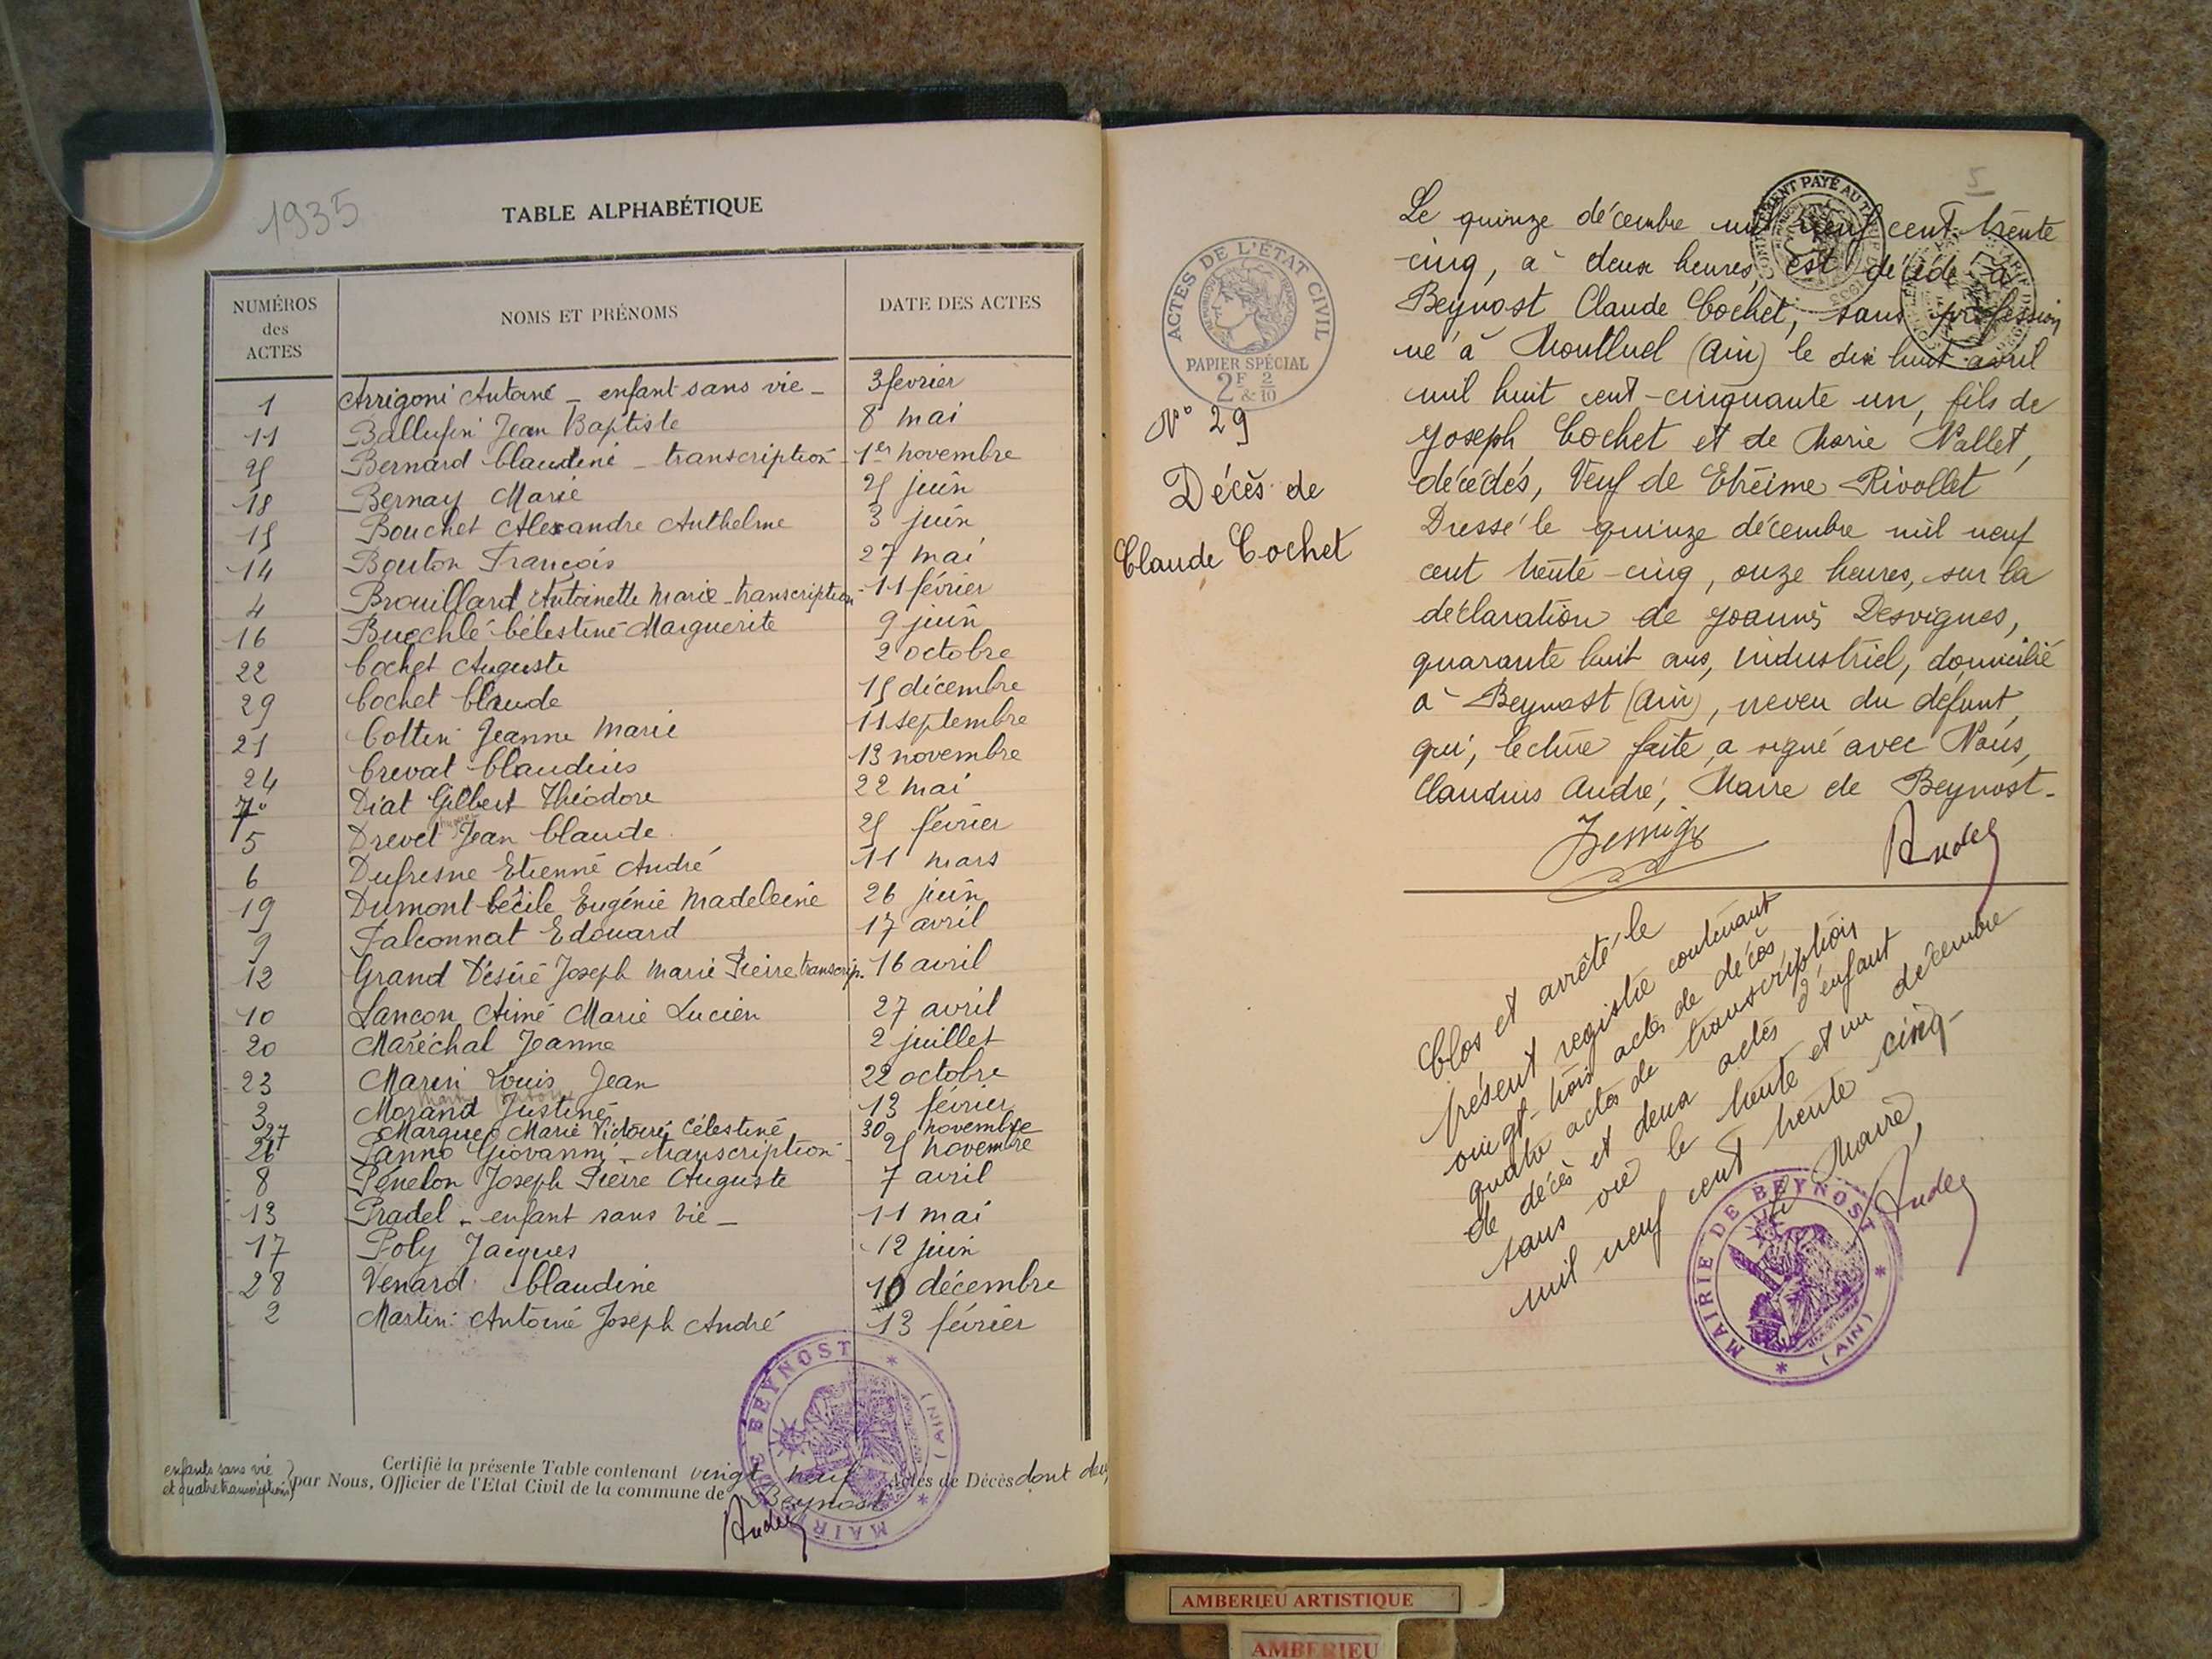 1935
TABLE ALPHABÉTIQUE
NUMÉROS des ACTES NOMS ET PRÉNOMS DATE DES ACTES
1 Arrigoni Antoine _ enfant sans vie _ 3 février
11 Jean Baptiste 8 mai
25 Bernard Claudine _ transcription _ 1er novembre
18 Bernay Marie 25 juin
15 Bouchet Alexandre Anthelme 3 juin
14 Bouton François 27 mai
4 Brouillard Antoinette Marie _ transcription - 11 février
16 Buechlé Célestine Marguerite 9 juin
22 Cochet Auguste 2 octobre
29 Cochet Claude 15 décembre
21 Cottin Jeanne Marie 11 septembre
24 Crevat Claudius 13 novembre
7 Diat Gilbert Théodore 22 mai
5 Drevet Jean Claude 25 février
6 Dufresne Etienne André 11 mars
19 Dumont Cécile Eugénie Madeleine 26 juin
9 Falconnat Edouard 17 avril
12 Grand Désiré Joseph Marie Pierre transcrip. 16 avril
10 Lancon Aimé Marie Lucien 27 avril
20 Maréchal Jeanne 2 juillet
23 Marin Louis Jean 22 octobre
3 Morand Justine 13 février
27 Marguet Marie Victoire Célestine 30 novembre
26 Panno Giovanni _ transcription _ 25 novembre
8 Pénelon Joseph Pierre Auguste 7 avril
13 Pradel _ enfant sans vie _ 11 mai
17 Poly Jacques 12 juin
28 Venard Claudine 10 décembre
2 Martin Antoine Joseph André 13 février
Certifié la présente Table contenant vingt neuf Actes de Décès dont deux
enfants sans vie
et quatre transcriptions) par Nous, Officier de l'Etat Civil de la commune de Beynost
André
MAIRIE DE BEYNOST * (AIN) *
ACTES DE L'ÉTAT CIVIL
PAPIER SPÉCIAL
2F & 2/10
N° 29
Décès de
Claude Cochet
5
Le quinze décembre mil neuf cent trente
cinq, à deux heures, est décédé à
Beynost Claude Cochet, sans profession
né à Montluel (Ain) le dix huit avril
mil huit cent-cinquante un, fils de
Joseph Cochet et de Marie Nallet,
décédés, Veuf de Rivollet
Dressé le quinze décembre mil neuf
cent trente-cinq, onze heures, sur la
déclaration de Joannès Desvignes,
quarante huit ans, industriel, domicilié
à Beynost (Ain), neveu du défunt,
qui, lecture faite, a signé avec Nous,
Claudius André, Maire de Beynost-
André
Clos et arrêté le
présent registre contenant
vingt-trois actes de décès
quatre actes de transcription
de décès et deux actes d'enfant
sans vie le trente et un décembre
mil neuf cent trente cinq-
Maire,
André
MAIRIE DE BEYNOST * (AIN) *
AMBERIEU ARTISTIQUE
AMBERIEU